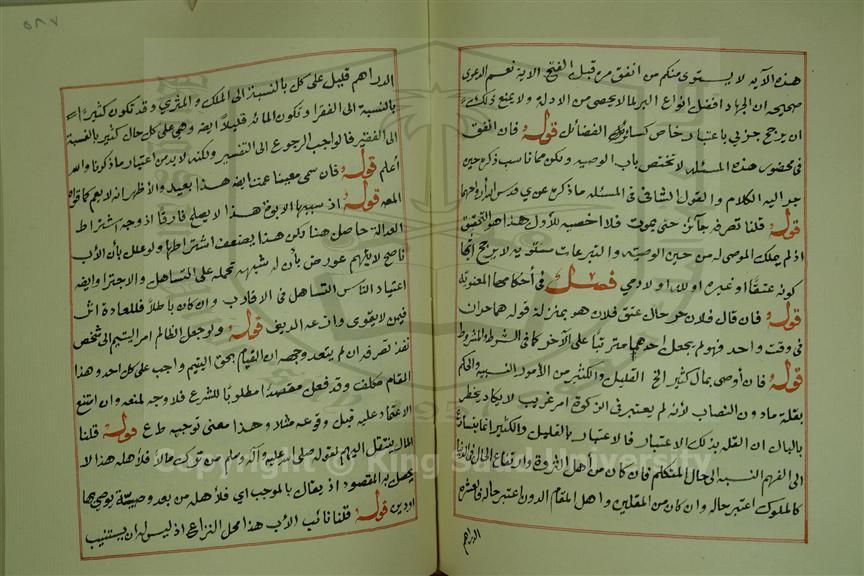 هذه الآيه لا يستوى منكم من انفق من قبل الفتح الاية نعم الدعوى
صحيحه ان الجهاد افضل انواع البر لما لا يحصى من الادلة ولا يمنع ذلك
ان يرجح جزئي باعتبار خاص كسائر الفضائل قوله فان اتفق
فى محضور هذه المسئله لا تختص باب الوصيه ولكن مما ناسب ذكره حين
جر اليه الكلام والقول الشافى فى المسئله ما ذكره
قوله قلنا تصرفه جائز حتى يموت فلا اخصيه للأول هذا هو التحقيق
اذ لم يملك الموصى له من حين الوصيه والتبرعات مستويه لا يرجح
كونه عتقا او غيره او لله او لادمي فصل فى أحكامها المعنويه
قوله فان قال فلان حر حال عتق فلان هو بمنزلة قوله هما حران
فى وقت واحد فهو لم يجعل احدهما مترتبا على الآخر كما فى الشرط والمشروط
قوله فان أوصى بمال كثير الخ القليل والكثير من الأمور النسبيه والحكم
بقلة ما دون النصاب لأنه لم يعتبر فى الزكوة امر غريب لا يكاد يخطر
بالبال ان القله بذلك الاعتبار فالاعتبار بالقليل والكثير انما ينساق
الى الفهم النسبه الى حال المتكلم فان كان من أهل الثروة وارتفاع الحال فى الدنيا
كالملوك اعتبر حاله وان كان من المقلين واهل المقام الدون اعتبر حاله فالعشره
الدراهم
٥٨٧
الدراهم قليل على كل بالنسبة الى الملك والمثري وقد تكون كثيرا
بالنسبة الى الفقرا وتكون المائه قليلا ايضه وهى على كل حال كثير بالنسبة
الى الفقير فالواجب الرجوع الى التفسير ولكنه لا بد من اعتبار ما ذكرنا والله
أعلم قوله فان سمى معينا عمت ايضه هذا بعيد والأظهر انه لا يعم كما قواه
المص قوله اذ سببها الابوة هذا لا يصلح فارقا اذ وجه اشتراط
العدالة حاصل هنا ولكن هذا يضعف اشتراطها ولو علل بأن الأب
ناصح لا يتهم عورض بأن له شبهه تحمله على التساهل والاجترا وايضه
اعتياد الناس التساهل فى الاقارب وان كان باطلا فللعادة اثر
فيمن لا يقوى وازعه الدينى قوله ولو جعل الظالم امر اليتيم الى شخص
نفذ تصرفه ان لم يتعد وجهه ان القيام بحق اليتيم واجب على كل احد وهذا
القائم مكلف وقد فعل مقتضا مطلوبا للشرع فلا وجه لمنعه وان امتنع
الاعتماد عليه قبل وقوعه مثلا وهذا معنى توجيه ط ع قوله قلنا
المال ينتقل اليهم لقوله صلى الله عليه وآله وسلم من ترك مالا فلأهله هذا لا
يحصل به المقصود اذ يقال بالموجب اي فلأهله من بعد وصيته يوصي بها
او دين قوله قلنا نائب الأب هذا محل النزاع اذ ليس له ان يستنيب
Copyright © King Saud University
1957